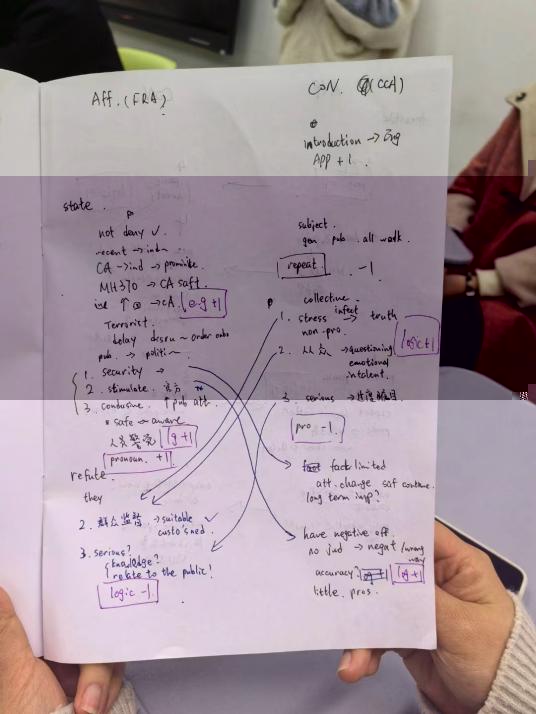 Aff. (FRA)
state.
not deny ✓.
recent → ind~
CA → ind → promote.
MH370 → CA saft.
↑ → CA. e.g +1
Terrorist.
delay ~ order
pub. → politi~.
1. security →
2. stimulate. 官方
3. condusive. ↑ pub att.
safe → aware
人员警觉 lg +1
pronoun. +1
refute
they
2. 群众监督 → suitable ✓
custo'sned.
3. serious?
knowledge?
relate to the public!
logic -1
CON. (CCA)
introduction → Eng
App + 1.
subject.
gen. pub. all walk.
repeat. -1
collective.
1. stress infect → truth
non-pro.
logic +1
2. 从众 → questioning
emotional
intolent.
3. serious →
pro -1.
fact limited
att. change saf continue.
long term imp?
have negative off.
no jud → negat / wrong way
accuracy? lg +1
little. pros.